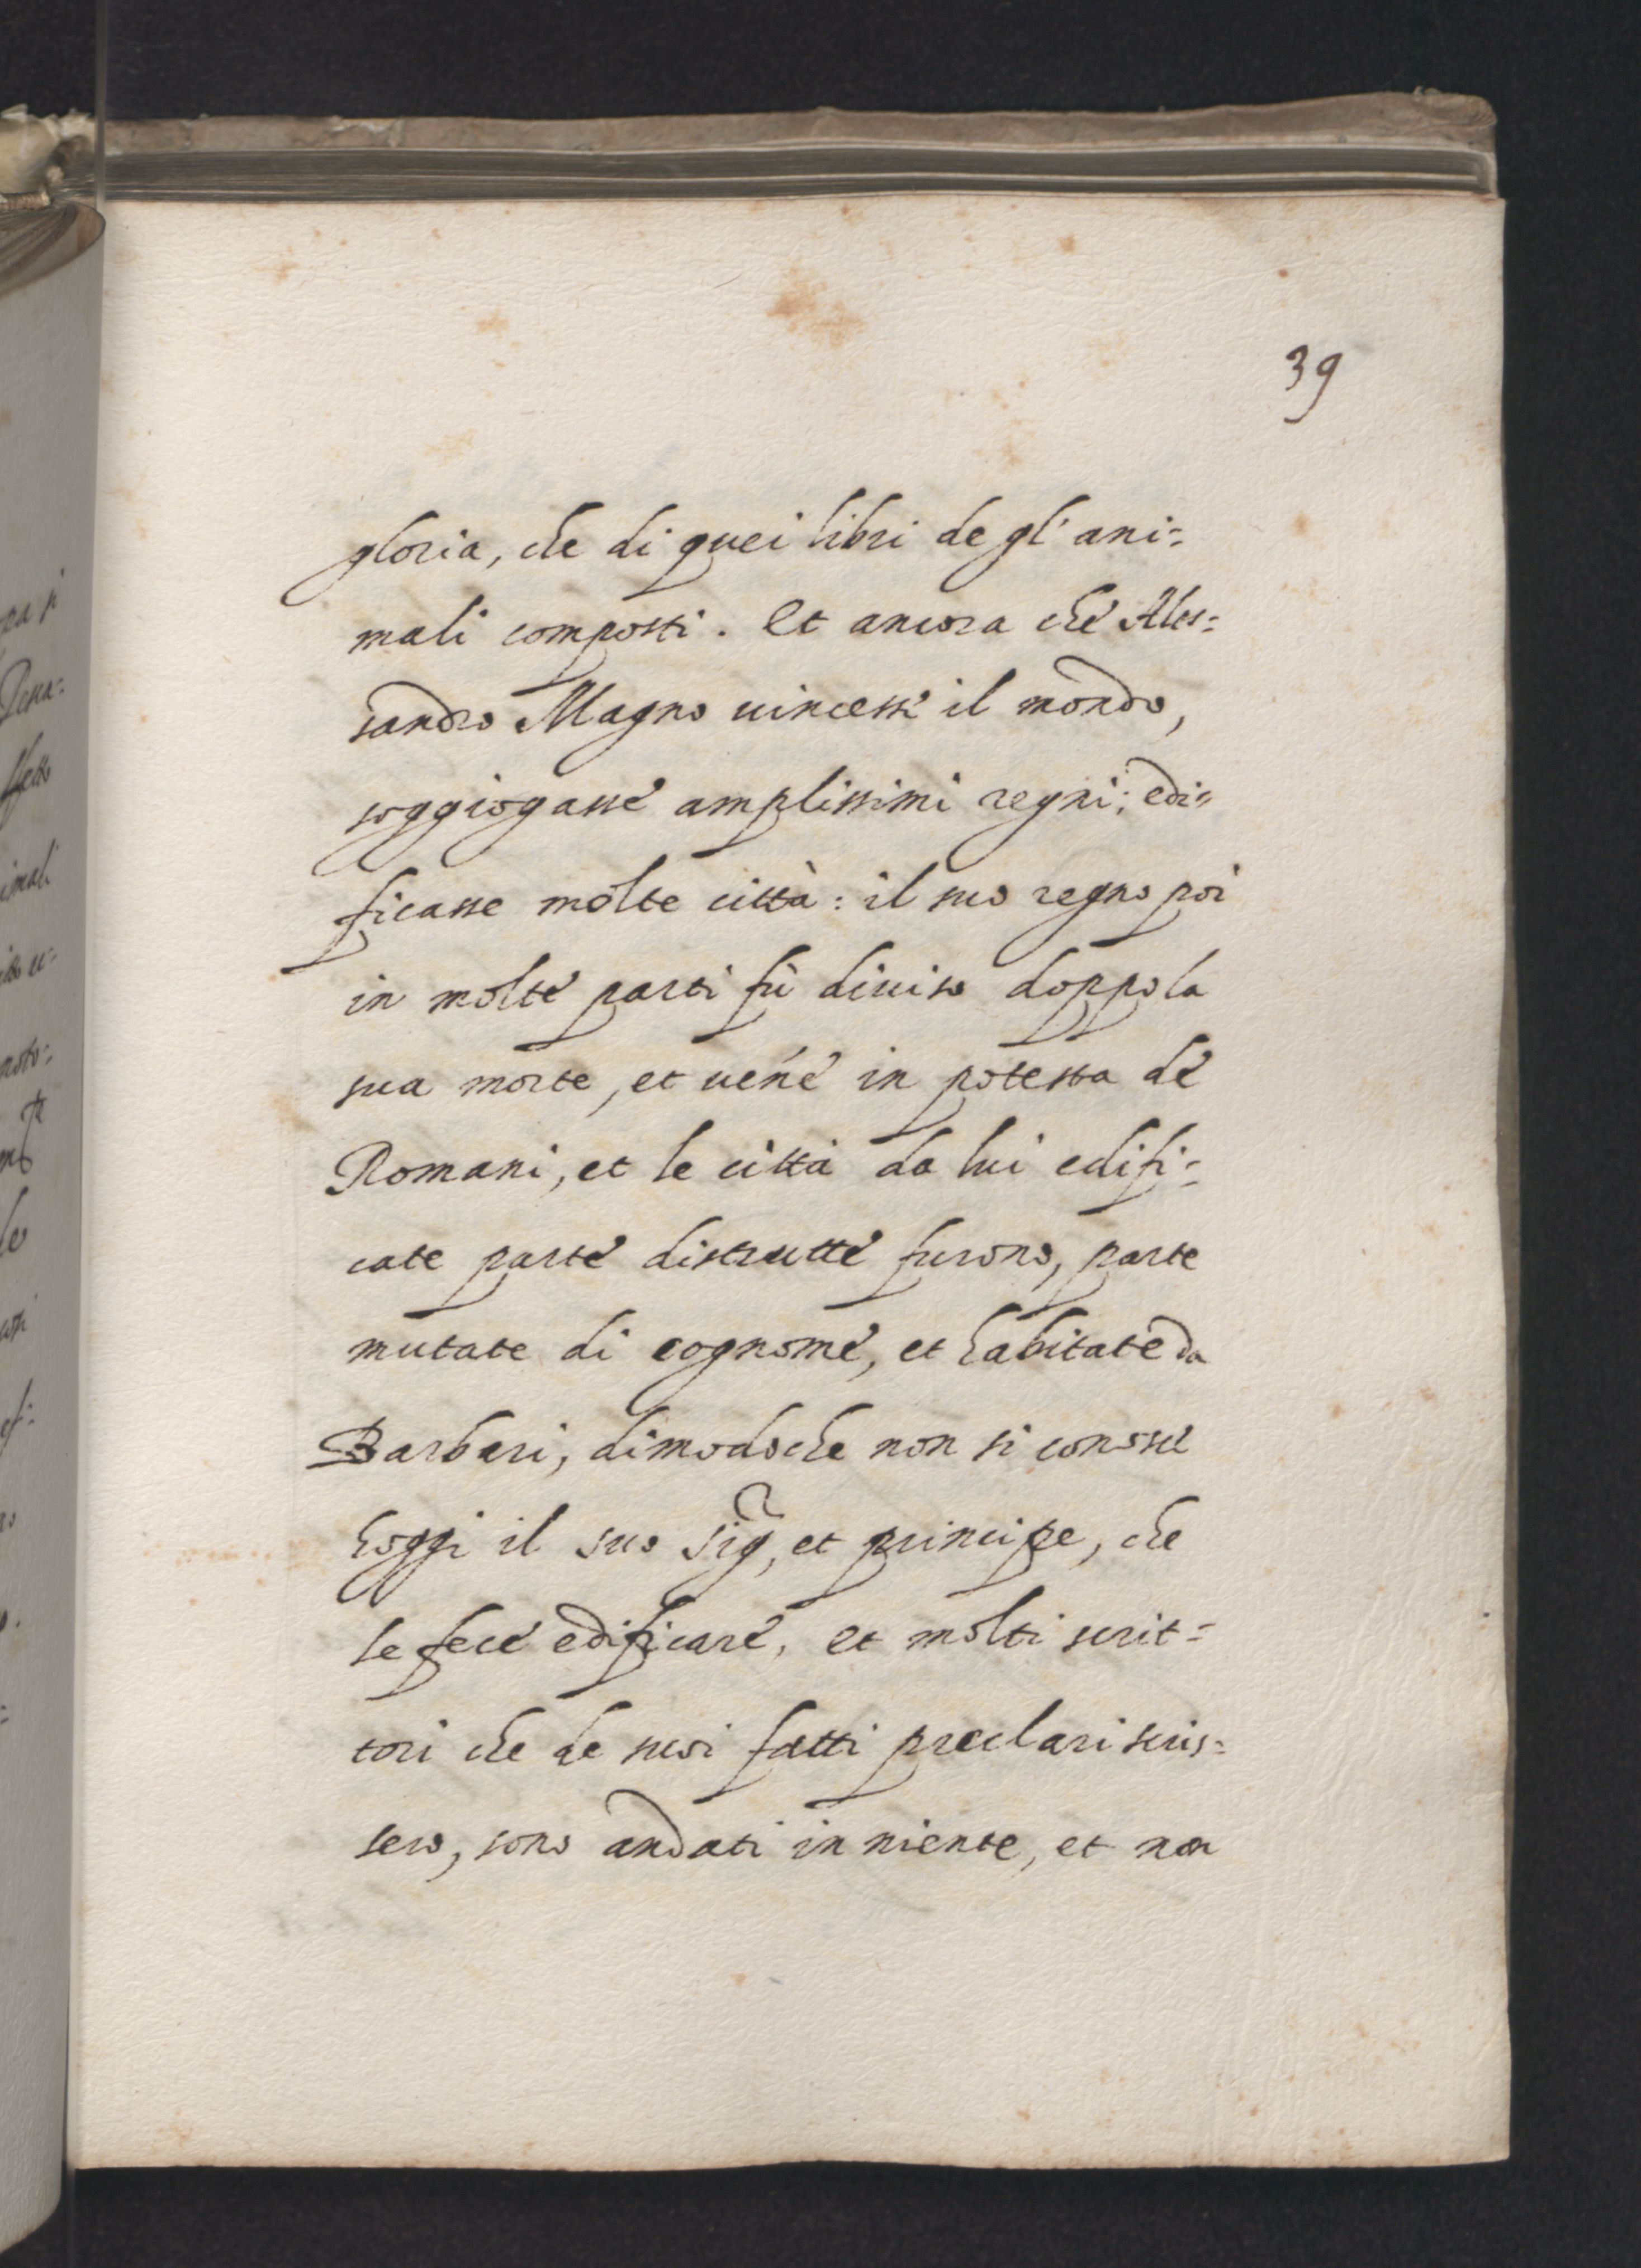 39
gloria, che di quei libri de gl' ani=
mali composti. Et ancora che Ales=
sandro Magno uincesse il mondo,
soggiogasse amplissimi regni; edi=
ficasse molte città: il suo regno poi
in molte parti fù diuiso doppo la
sua morte, et uenè in potesta de
Romani, et le città da lui edifi=
cate parte distrutte furono, parte
mutate di cognome, et habitate da
Barbari, dimodoche non si conosce
hoggi il suo sig, et principe, che
le fece edificare, et molti scrit=
tori che de suoi fatti preclari scris=
sero, sono andati in niente, et non